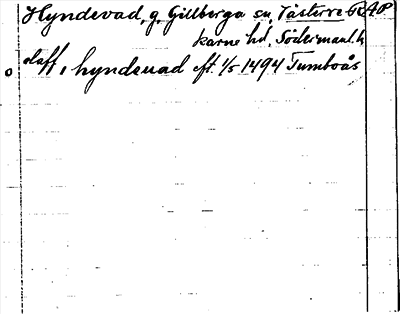 Hyndevad, g. Gillberga sn, Västerre- RAP
karne hd, Södermanl. l.
olaff i hyndeuad eft. 1/5 1494 Tumboås